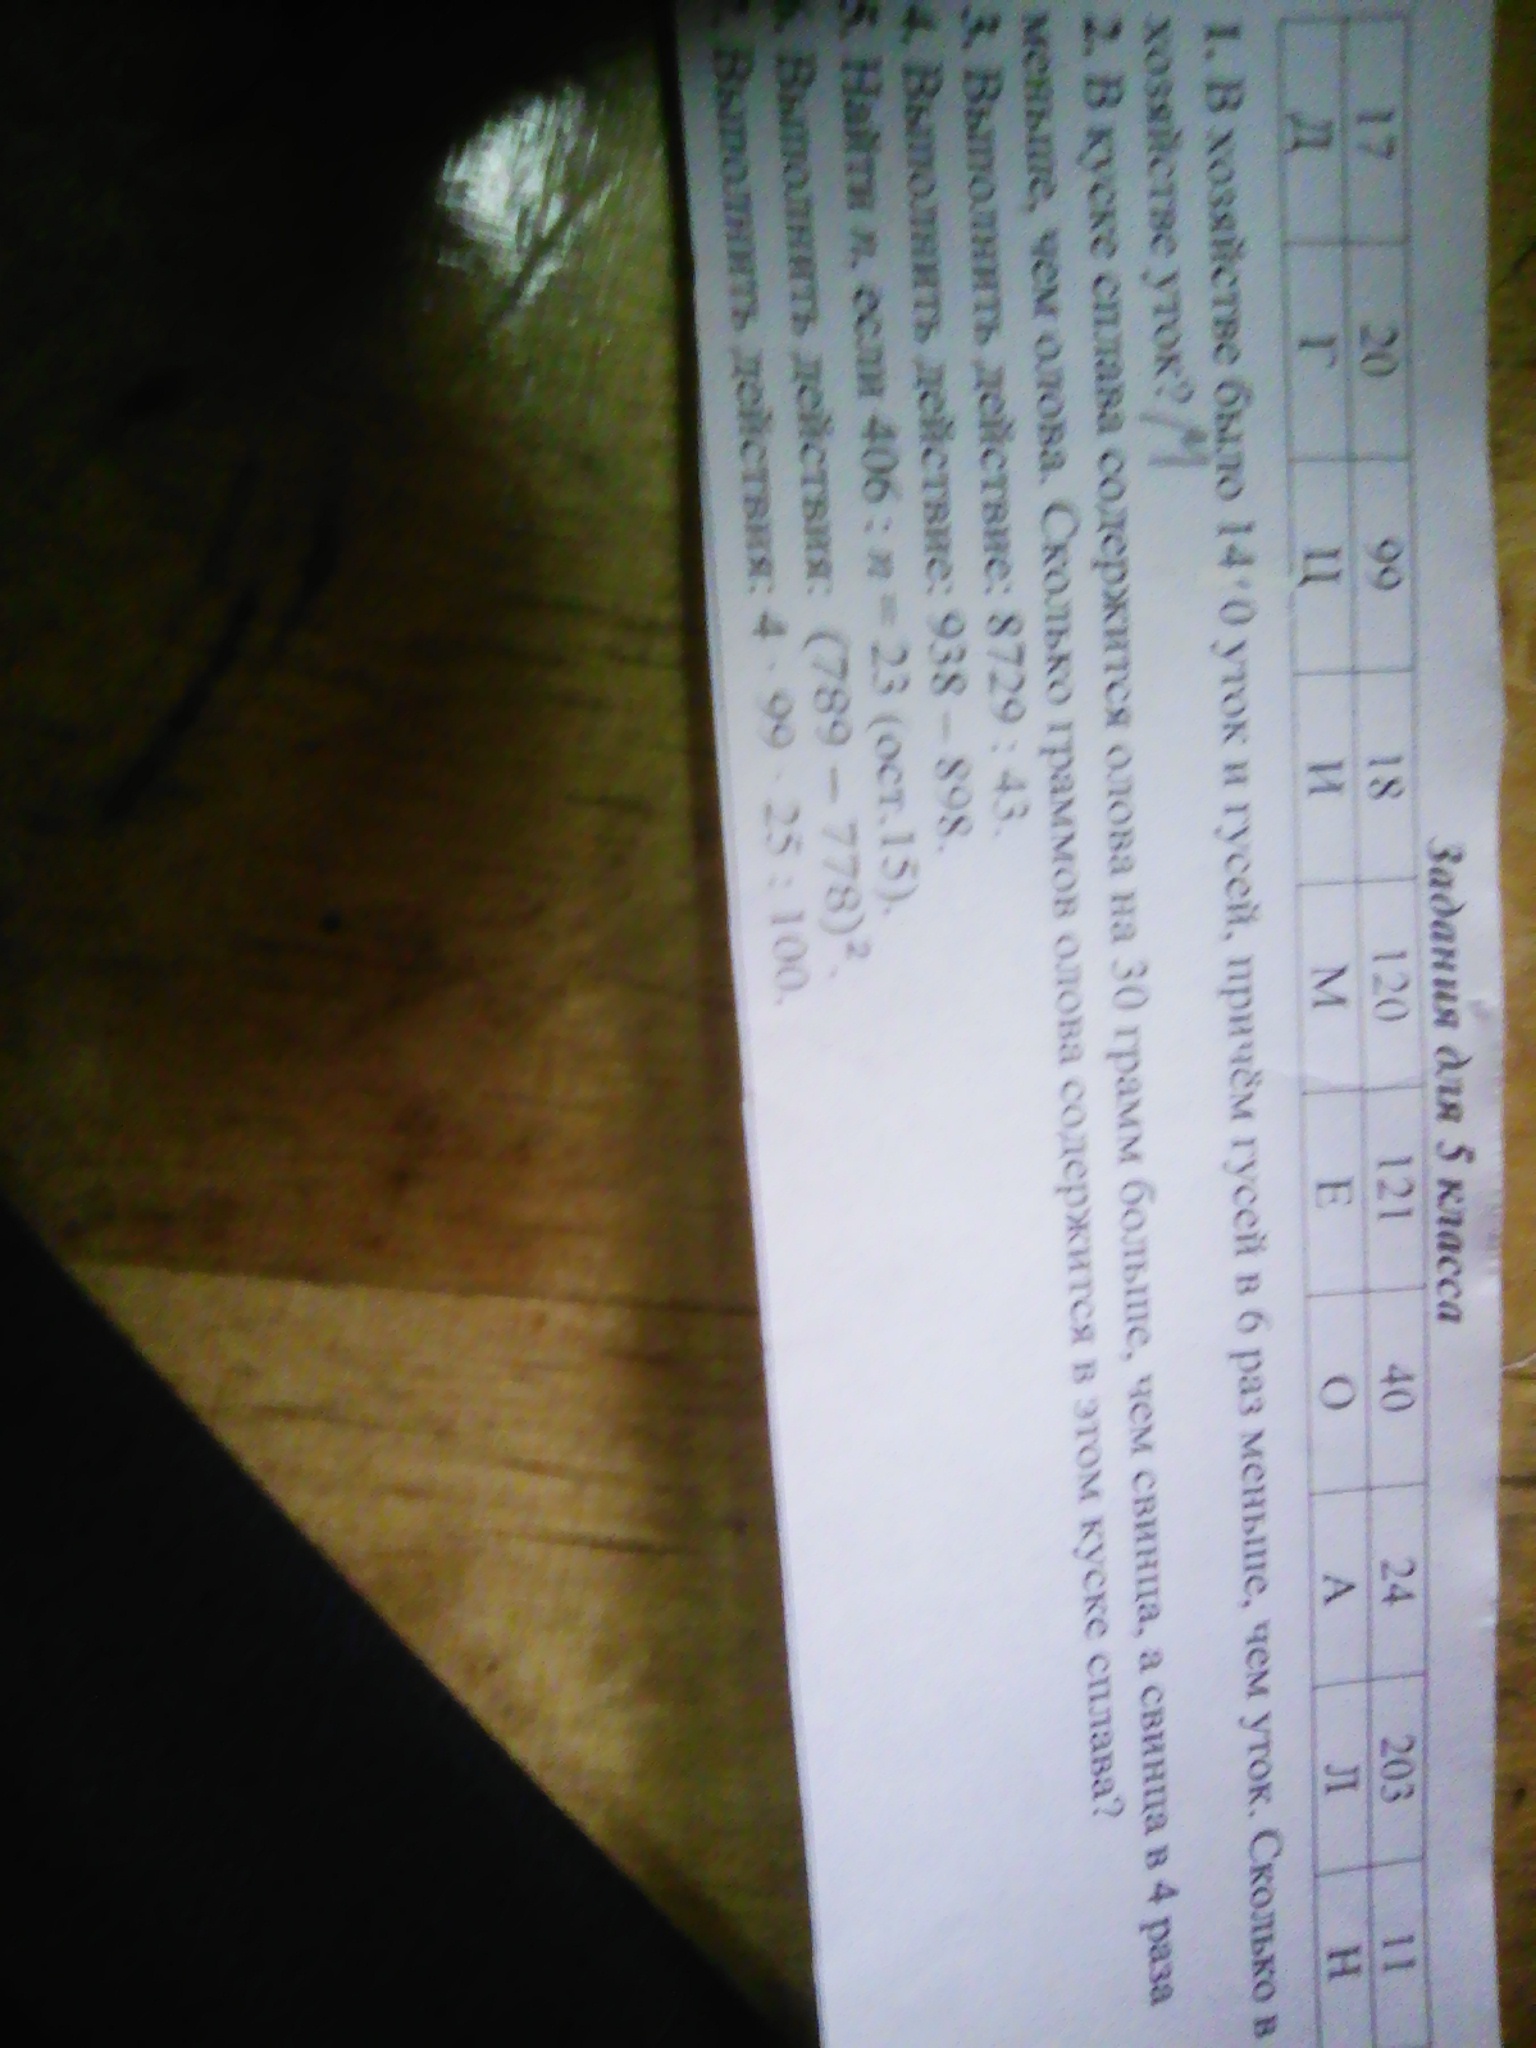 Задания для 5 класса
17 20 99 18 120 121 40 24 203 11
Д Г Ц И М Е О А Л Н
1. В хозяйстве было 140 уток и гусей, причём гусей в 6 раз меньше, чем уток. Сколько в
хозяйстве уток? М
2. В куске сплава содержится олова на 30 грамм больше, чем свинца, а свинца в 4 раза
меньше, чем олова. Сколько граммов олова содержится в этом куске сплава?
3. Выполнить действие: 8729 : 43.
4. Выполнить действие: 938 – 898.
5. Найти n, если 406 : n = 23 (ост.15).
Выполнить действия: (789 – 778)².
Выполнить действия: 4 · 99 · 25 : 100.